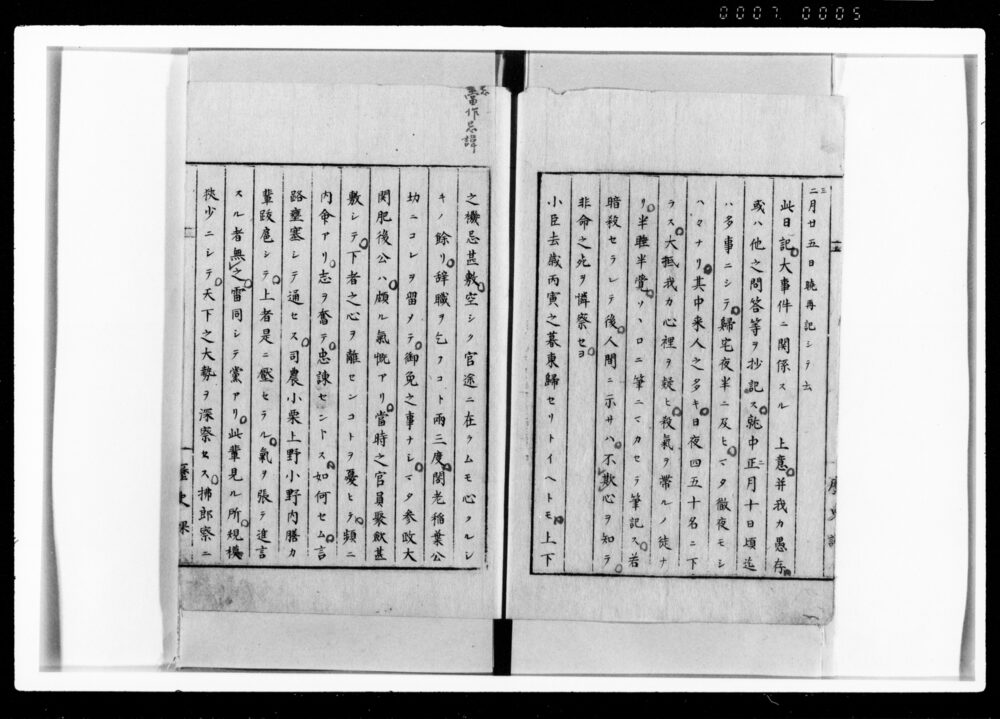 0007 0005
二月廿五日晩再記シテ云
三
此日記大事件ニ関係スル 上意并我カ愚存
或ハ他之問答等ヲ抄記ス就中正月十日頃迄
ハ多事ニシテ歸宅夜半ニ及ヒマタ徹夜モシ
ハ々ナリ其中来人之多キ日夜四五十名ニ下
ラス大抵我カ心裡ヲ疑ヒ殺氣ヲ帯ルノ徒ナ
リ半睡半覺ソヽロニ筆ニマカセテ筆記ス若
暗殺セラレテ後人間ニ示サハ不欺心ヲ知ラ
非命之死ヲ憐察セヨ
小臣去歳丙寅之暮東歸セリトイヘトモ上下
忌当作忌諱
之機忌甚敷空シク官途ニ在ラムモ心クルシ
キノ餘リ辞職ヲ乞フコト兩三度閣老稲葉公
切ニコレヲ留メテ御免之事ナシマタ参政大
関肥後公ハ頗ル氣慨アリ當時之官員聚歛甚
敷シテ下者之心ヲ離センコトヲ憂ヒテ頻ニ
内命アリ志ヲ奮テ忠諫セントス如何セム言
路壅塞シテ通セス司農小栗上野小野内膳カ
輩跋扈シテ上者是ニ壓セラル氣ヲ張テ進言
スル者無之雷同シテ黨アリ此輩見ル所規模
狹少ニシテ天下之大勢ヲ深察セス拂郎察ニ
歴史課